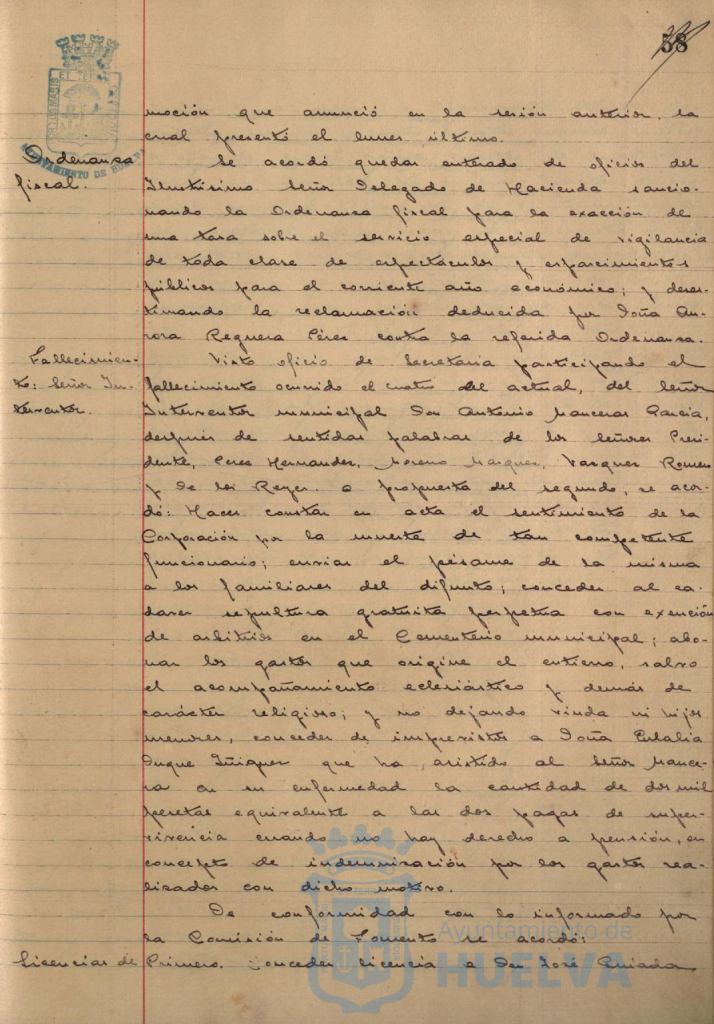 58
moción que anunció en la sesión anterior, la
cual presentó el lunes último.
Ordenanza
fiscal.
Se acordó quedar enterado de oficios del
Ilustrísimo Señor Delegado de Hacienda sancio-
nando la Ordenanza fiscal para la exacción de
una tasa sobre el servicio especial de vigilancia
de toda clase de espectáculos y esparcimientos
públicos para el corriente año económico; y deses-
timando la reclamación deducida por Doña Au-
rora Reguera Pérez contra la referida Ordenanza.
Fallecimien-
to: Señor In-
terventor.
Visto oficio de Secretaría participando el
fallecimiento ocurrido el cuatro del actual, del Señor
Interventor municipal Don Antonio Manceras García,
después de sentidas palabras de los Señores Presi-
dente, Pérez Hernández, Moreno Márquez, Vázquez Romero
y De los Reyes. a propuesta del segundo, se acor-
dó: Hacer constar en acta el sentimiento de la
Corporación por la muerte de tan competente
funcionario; enviar el pésame de la misma
a los familiares del difunto; conceder al ca-
dáver sepultura gratuita perpetua con exención
de arbitrios en el Cementerio municipal; abo-
nar los gastos que origine el entierro, salvo
el acompañamiento eclesiástico y demás de
carácter religioso; y no dejando viuda ni hijos
menores, conceder de imprevistos a Doña Eulalia
Duque Iñiguez que ha asistido al Señor Mance-
ra en su enfermedad la cantidad de dos mil
pesetas equivalente a las dos pagas de super-
vivencia cuando no hay derecho a pensión, en
concepto de indemnización por los gastos rea-
lizados con dicho motivo.
De conformidad con lo informado por
la Comisión de Fomento se acordó:
Licencias de
Primero. Conceder licencia a Don José Quiada
AYUNTAMIENTO DE HUELVA
Ayuntamiento de
HUELVA